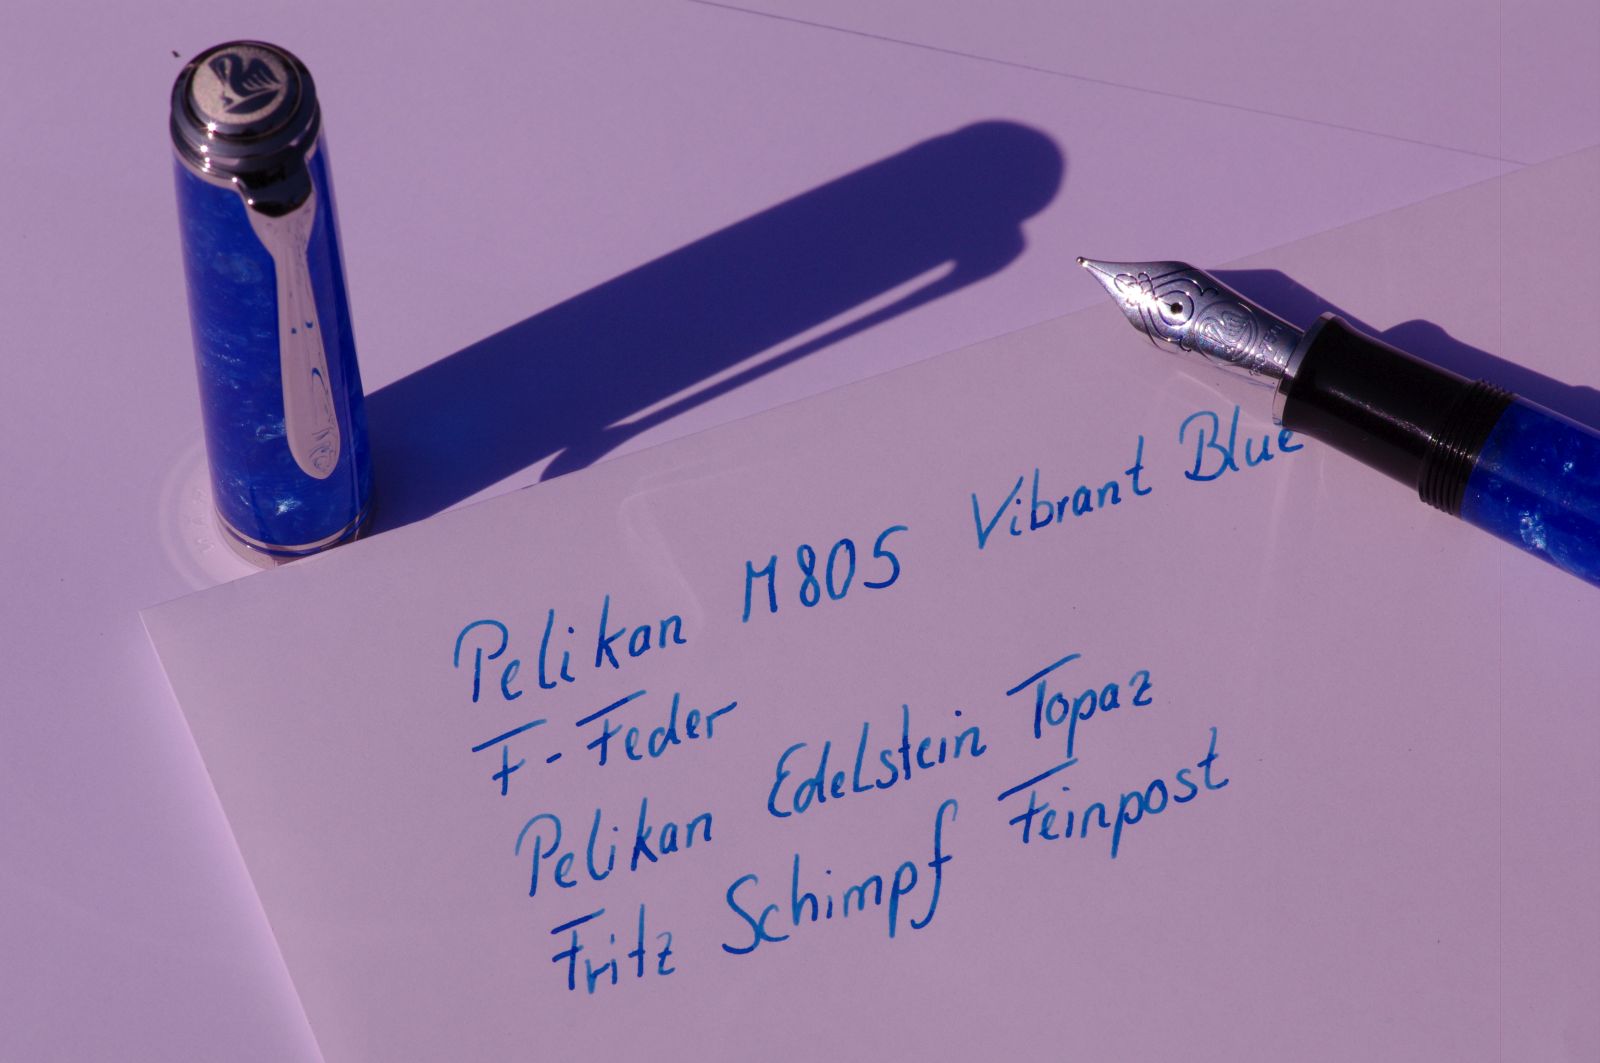 Pelikan M805 Vibrant Blue
F-Feder
Pelikan Edelstein Topaz
Fritz Schimpf Feinpost